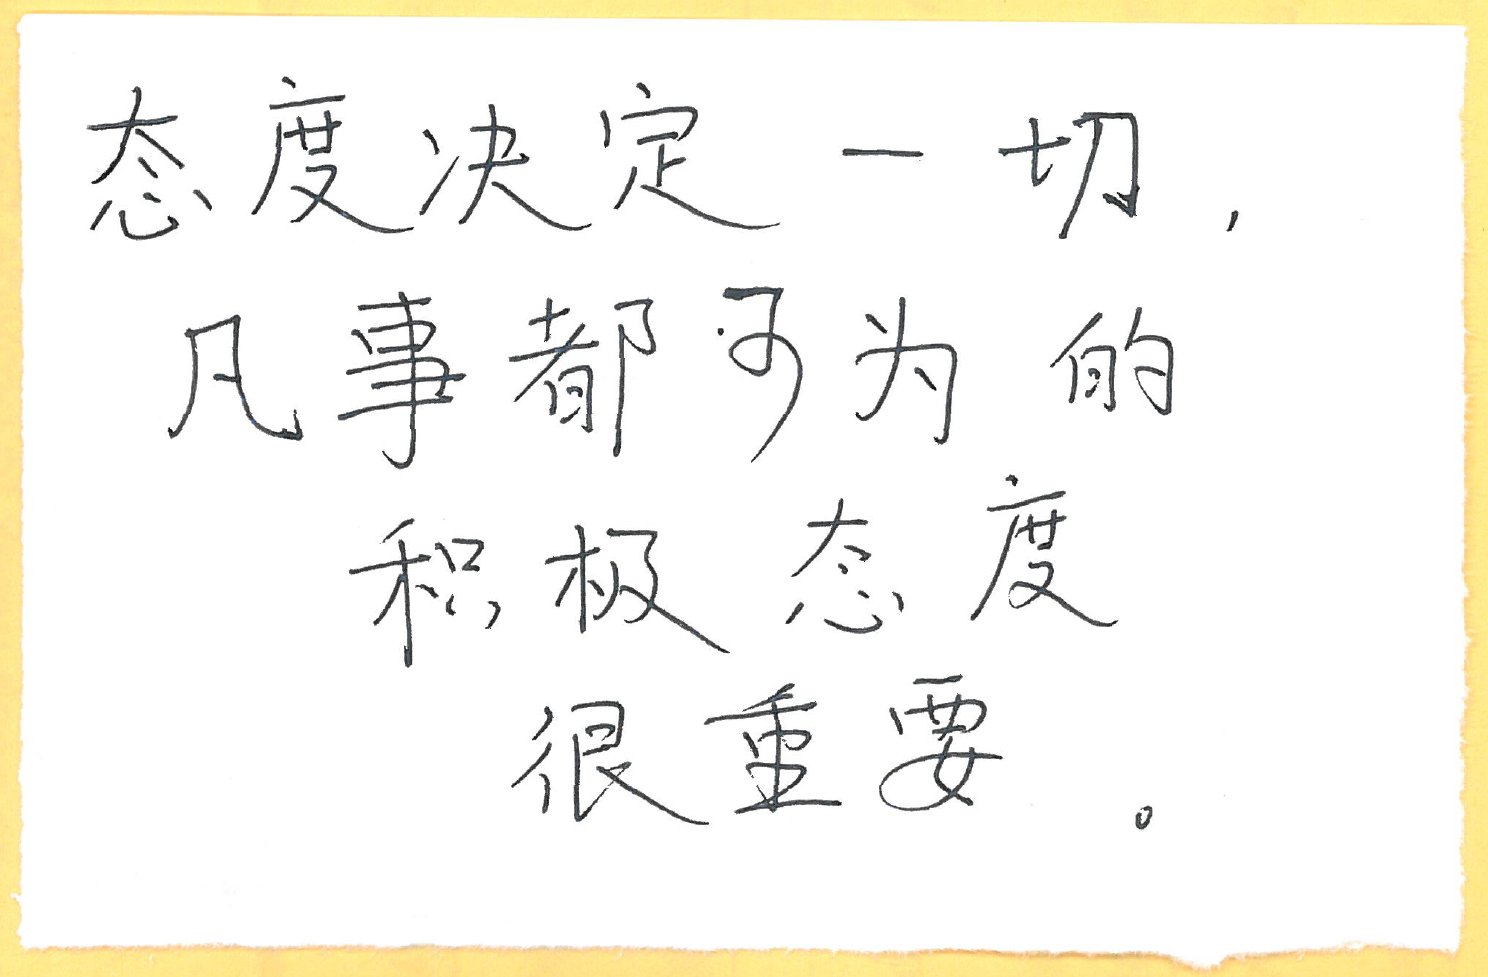 态度决定一切,
凡事都可为的
积极态度
很重要。